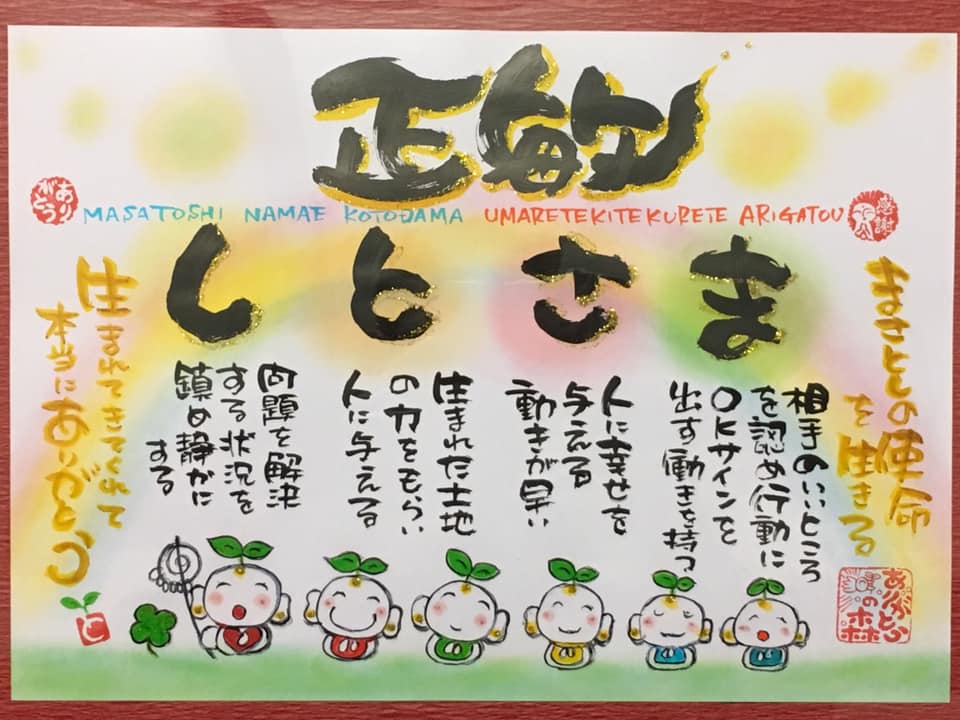 正敏
MASATOSHI NAMAE KOTODAMA UMARETEKITEKURETE ARIGATOU
感謝
ありがとう
まさとしの使命
を生きる
ま
相手のいいところ
を認め行動に
OKサインを
出す働きを持つ
さ
人に幸せを
与える
動きが早い
と
生まれた土地
の力をもらい
人に与える
し
問題を解決
する状況を
鎮め静かに
する
生まれてきてくれて
本当にありがとう
ありがとう
の森
と